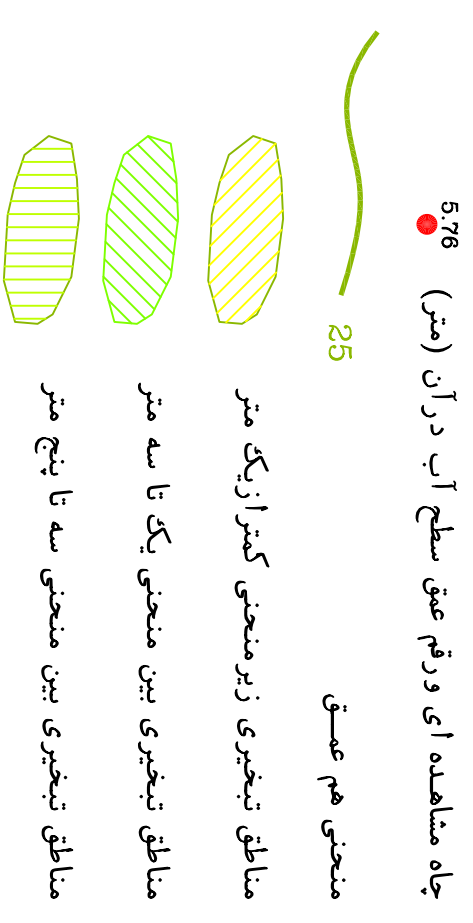 5.76
چاه مشاهده ای ورقم عمق سطح آب درآن (متر)
25
منحنی هم عمق
مناطق تبخیری زیرمنحنی کمترازیک متر
مناطق تبخیری بین منحنی یک تا سه متر
مناطق تبخیری بین منحنی سه تا پنج متر